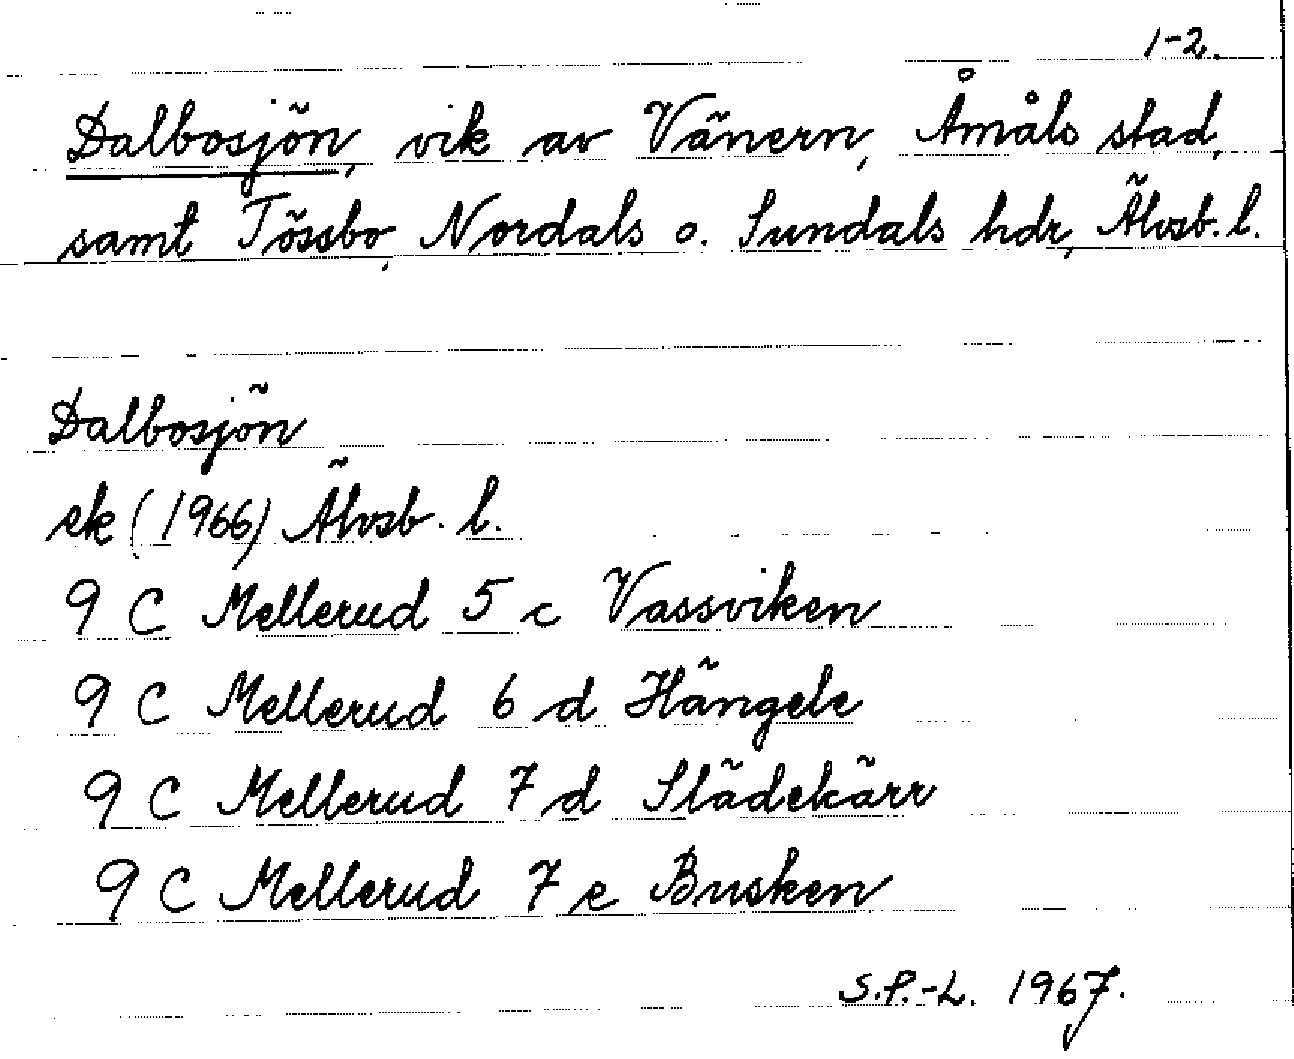 1-2.
Dalbosjön, vik av Vänern, Åmåls stad,
samt Tössbo, Nordals o. Sundals hdr, Älvsb. l.
Dalbosjön
ek (1966) Älvsb. l.
9 C Mellerud 5 c Vassviken
9 C Mellerud 6 d Hängele
9 C Mellerud 7 d Slädekärr
9 C Mellerud 7 e Busken
S.P.-L. 1967.